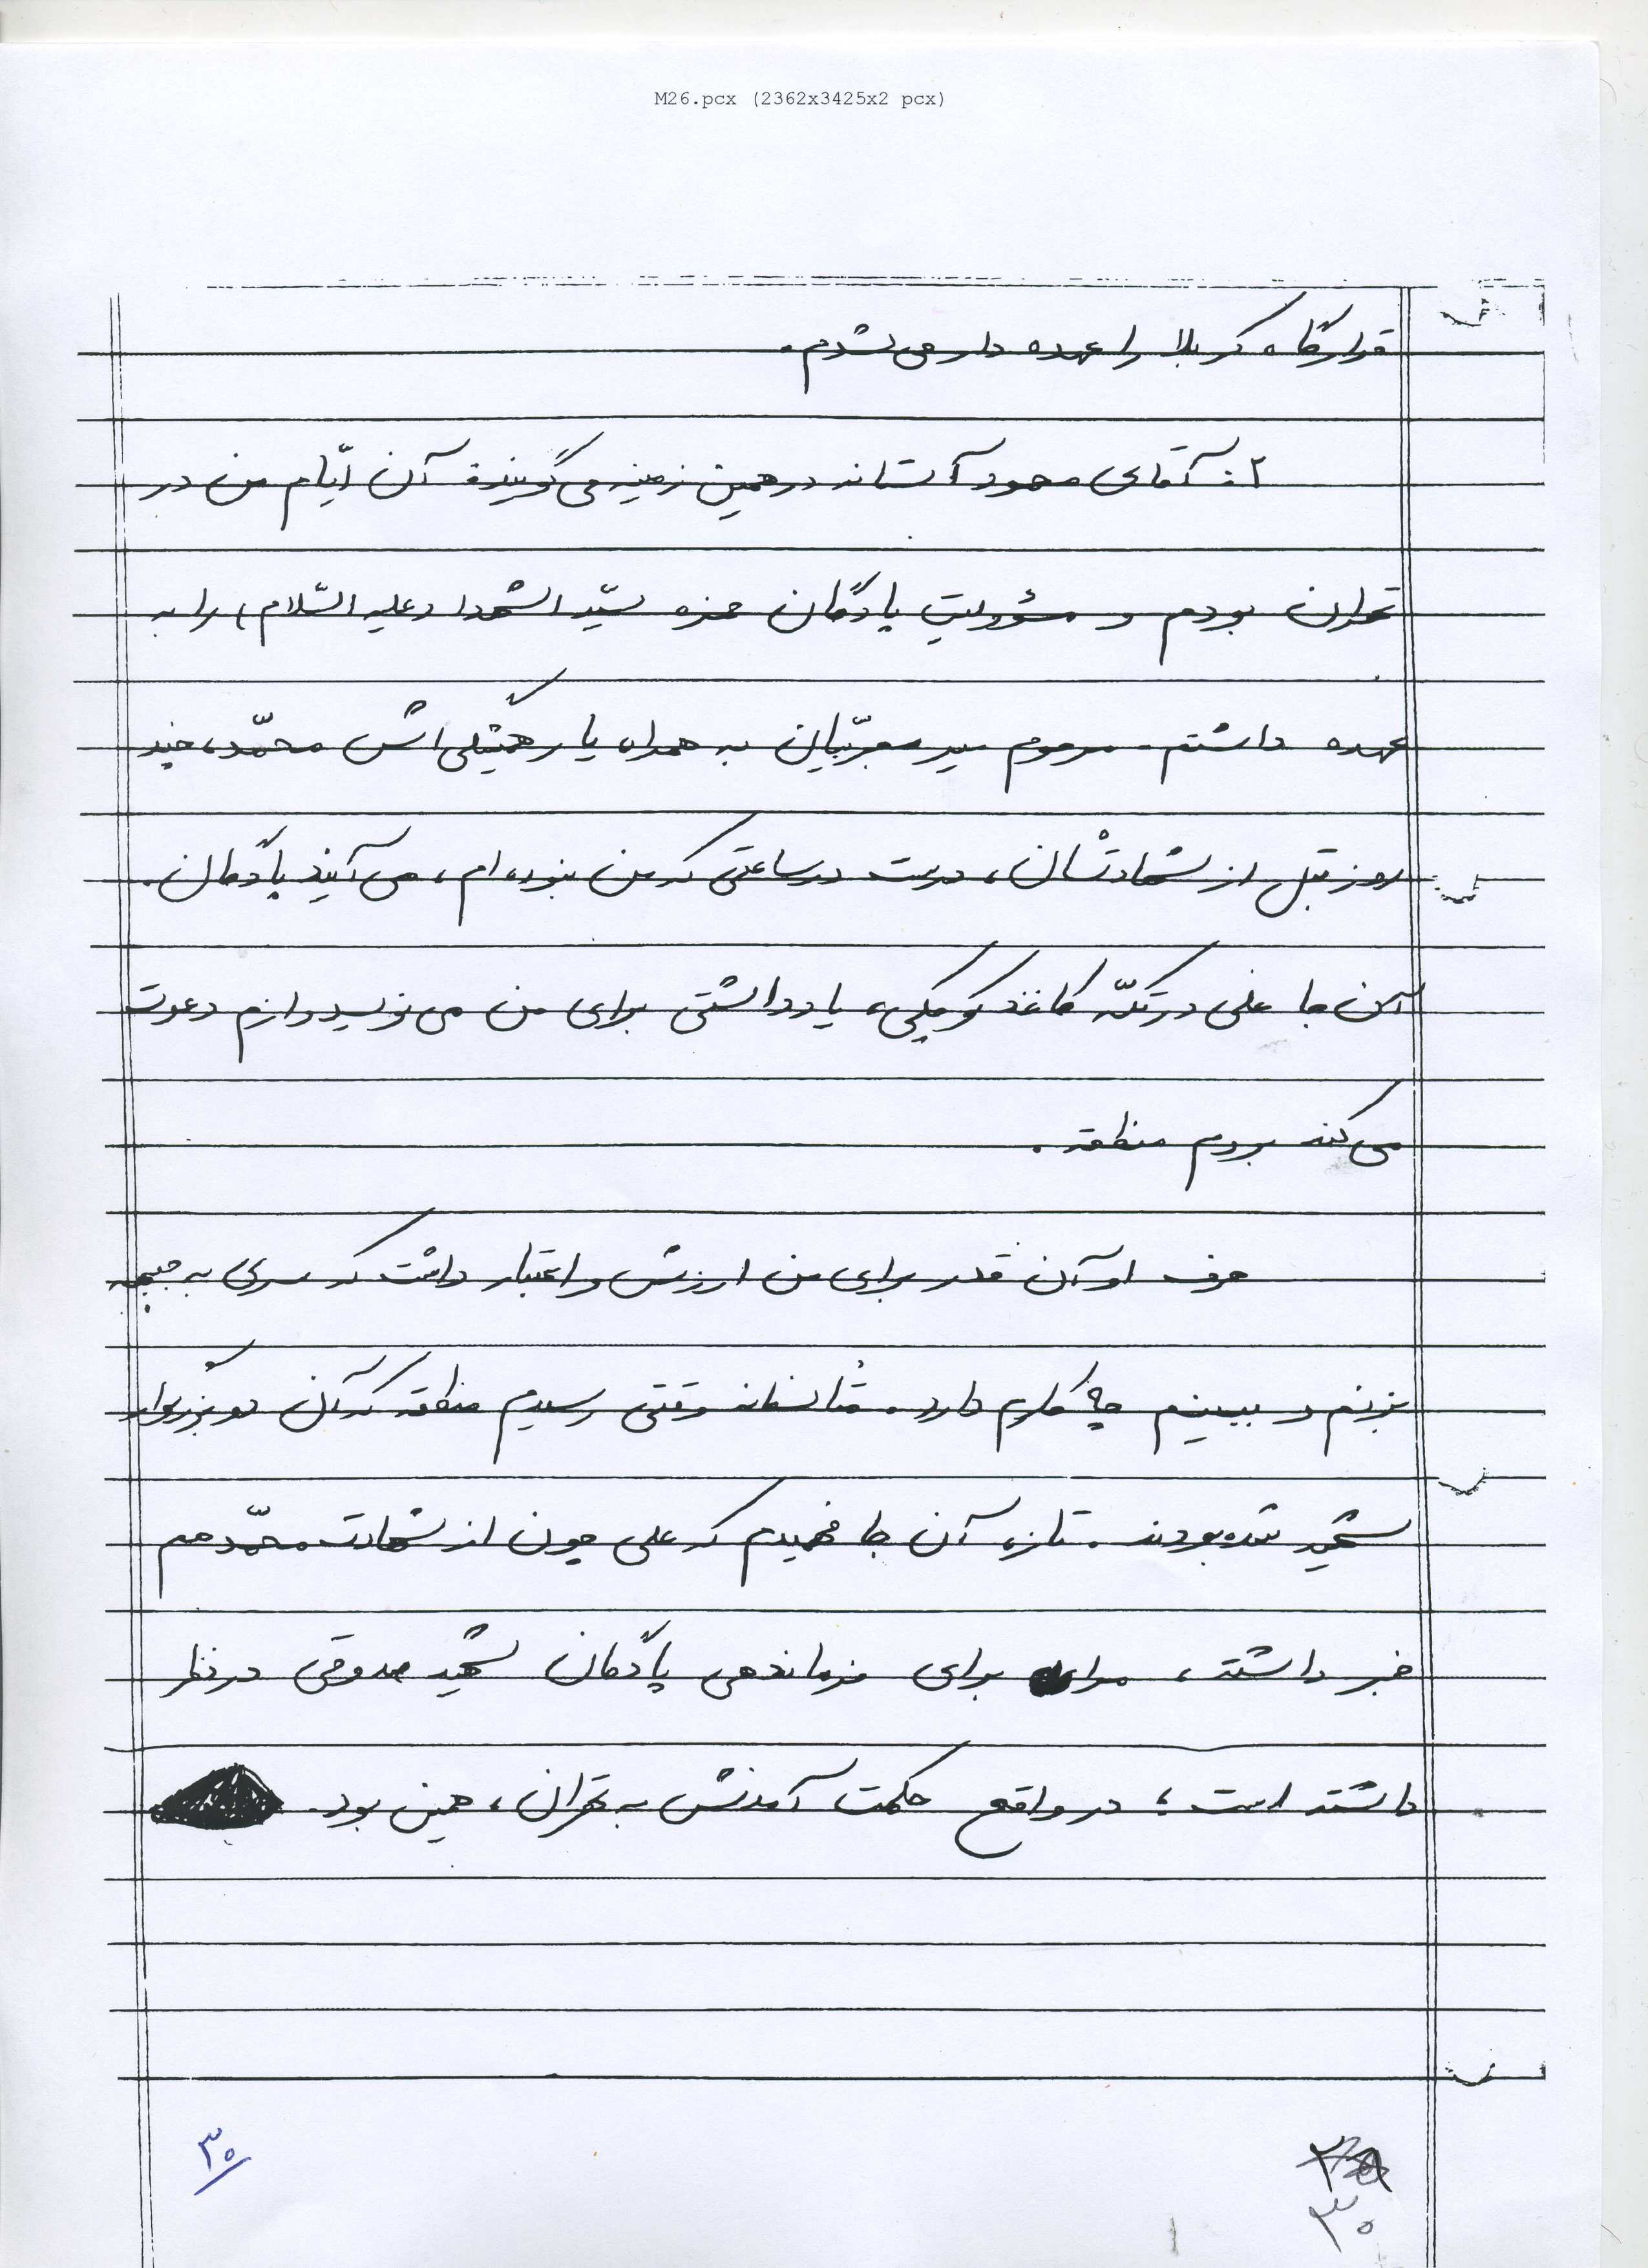 M26.pcx (2362x3425x2 pcx)
قرارگاه کربلا را عهده دار می شدم.
۲ـ آقای محمود آستانه در همین زمینه می گویند: آن ایّام من در
تهران بودم و مسؤولیت پادگان حمزه سیّد الشهدا (علیه السّلام) را به
عهده داشتم. مرحوم میر معزّیان به همراه یار همیشگی اش محمّد، چند
روز قبل از شهادتشان، درست در ساعتی که من نبوده ام، می آیند پادگان.
آن جا علی در تکّه کاغذ کوچکی، یادداشتی برای من می نویسد و ازم دعوت
می کند بروم منطقه.
حرف او آن قدر برای من ارزش و اعتبار داشت که سری به جبهه
بزنم و ببینم چه کارم دارد. متأسفانه وقتی رسیدم منطقه که آن دو بزرگوار
شهید شده بودند. تازه آن جا فهمیدم که علی چون از شهادت محمّد هم
خبر داشته، مرا برای فرماندهی پادگان شهید صدوقی در نظر
داشته است؛ در واقع حکمت آمدنش به تهران، همین بود.
۳۰
۳۰